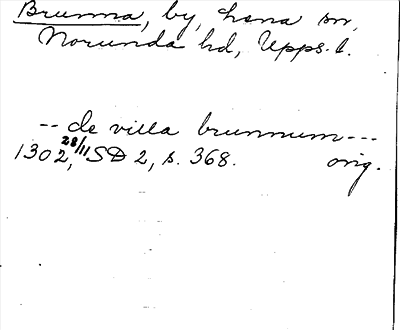 Brunna, by, Lena sn,
Norunda hd, Upps. l.
-- de villa brunnum ---
1302 28/11, SD 2, s. 368. orig.